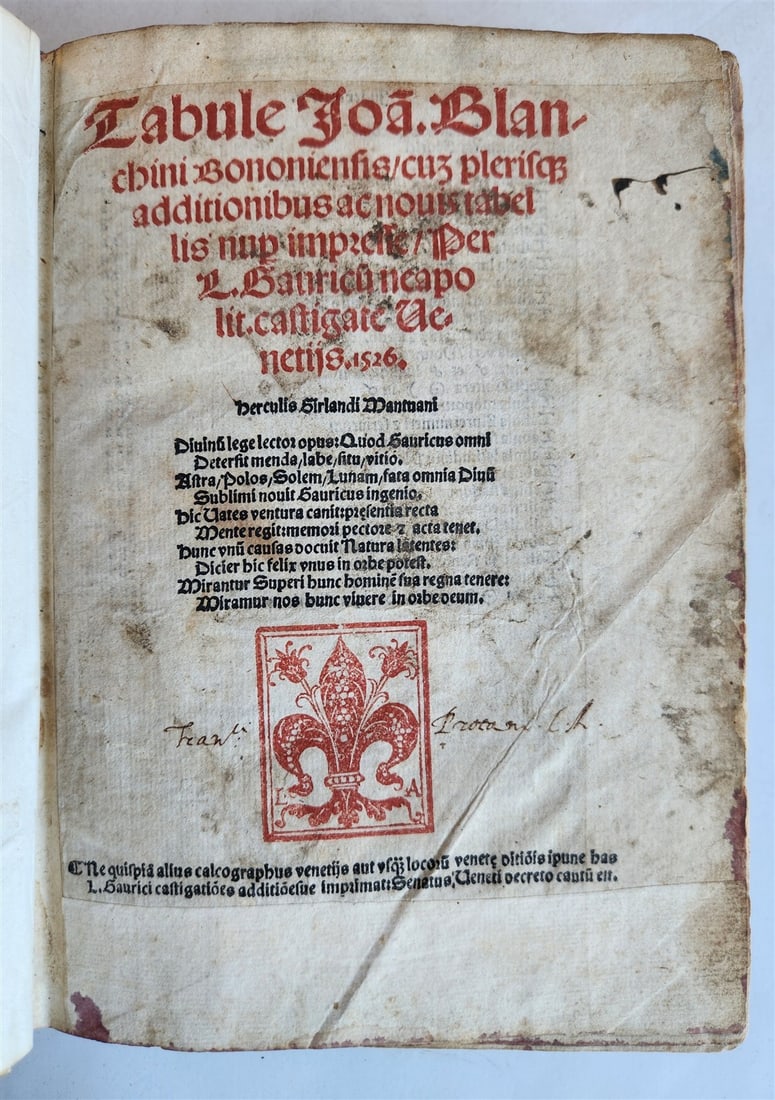 Tabule Joā. Blan-
chini Bononiensis/cuʒ plerisqꝫ
additionibus ac nouis tabel
lis nuꝑ impresse/Per
L. Gauricū neapo
lit. castigate Ue-
netijs. 1526.
Herculis Girlandi Mantuani
Diuinū lege lector opus: Quod Gauricus omni
Detersit menda/labe/situ/vitio.
Astra/Polos/Solem/Lunam/fata omnia Diuū
Sublimi nouit Gauricus ingenio.
Hic Uates ventura canit: presentia recta
Mente regit: memori pectore ⁊ acta tenet.
Hunc vnū causas docuit Natura latentes:
Dicier hic felix vnus in orbe potest.
Mirantur Superi hunc hominē sua regna tenere:
Miramur nos hunc viuere in orbe deum.
L A
Fran.
¶Ne quispiā alius calcographus venetijs aut vsqꝫ locorū venetę ditiōis ipune has
L. Gaurici castigatiōes additiōesue imprimat: Senatus Ueneti decreto cautū est.